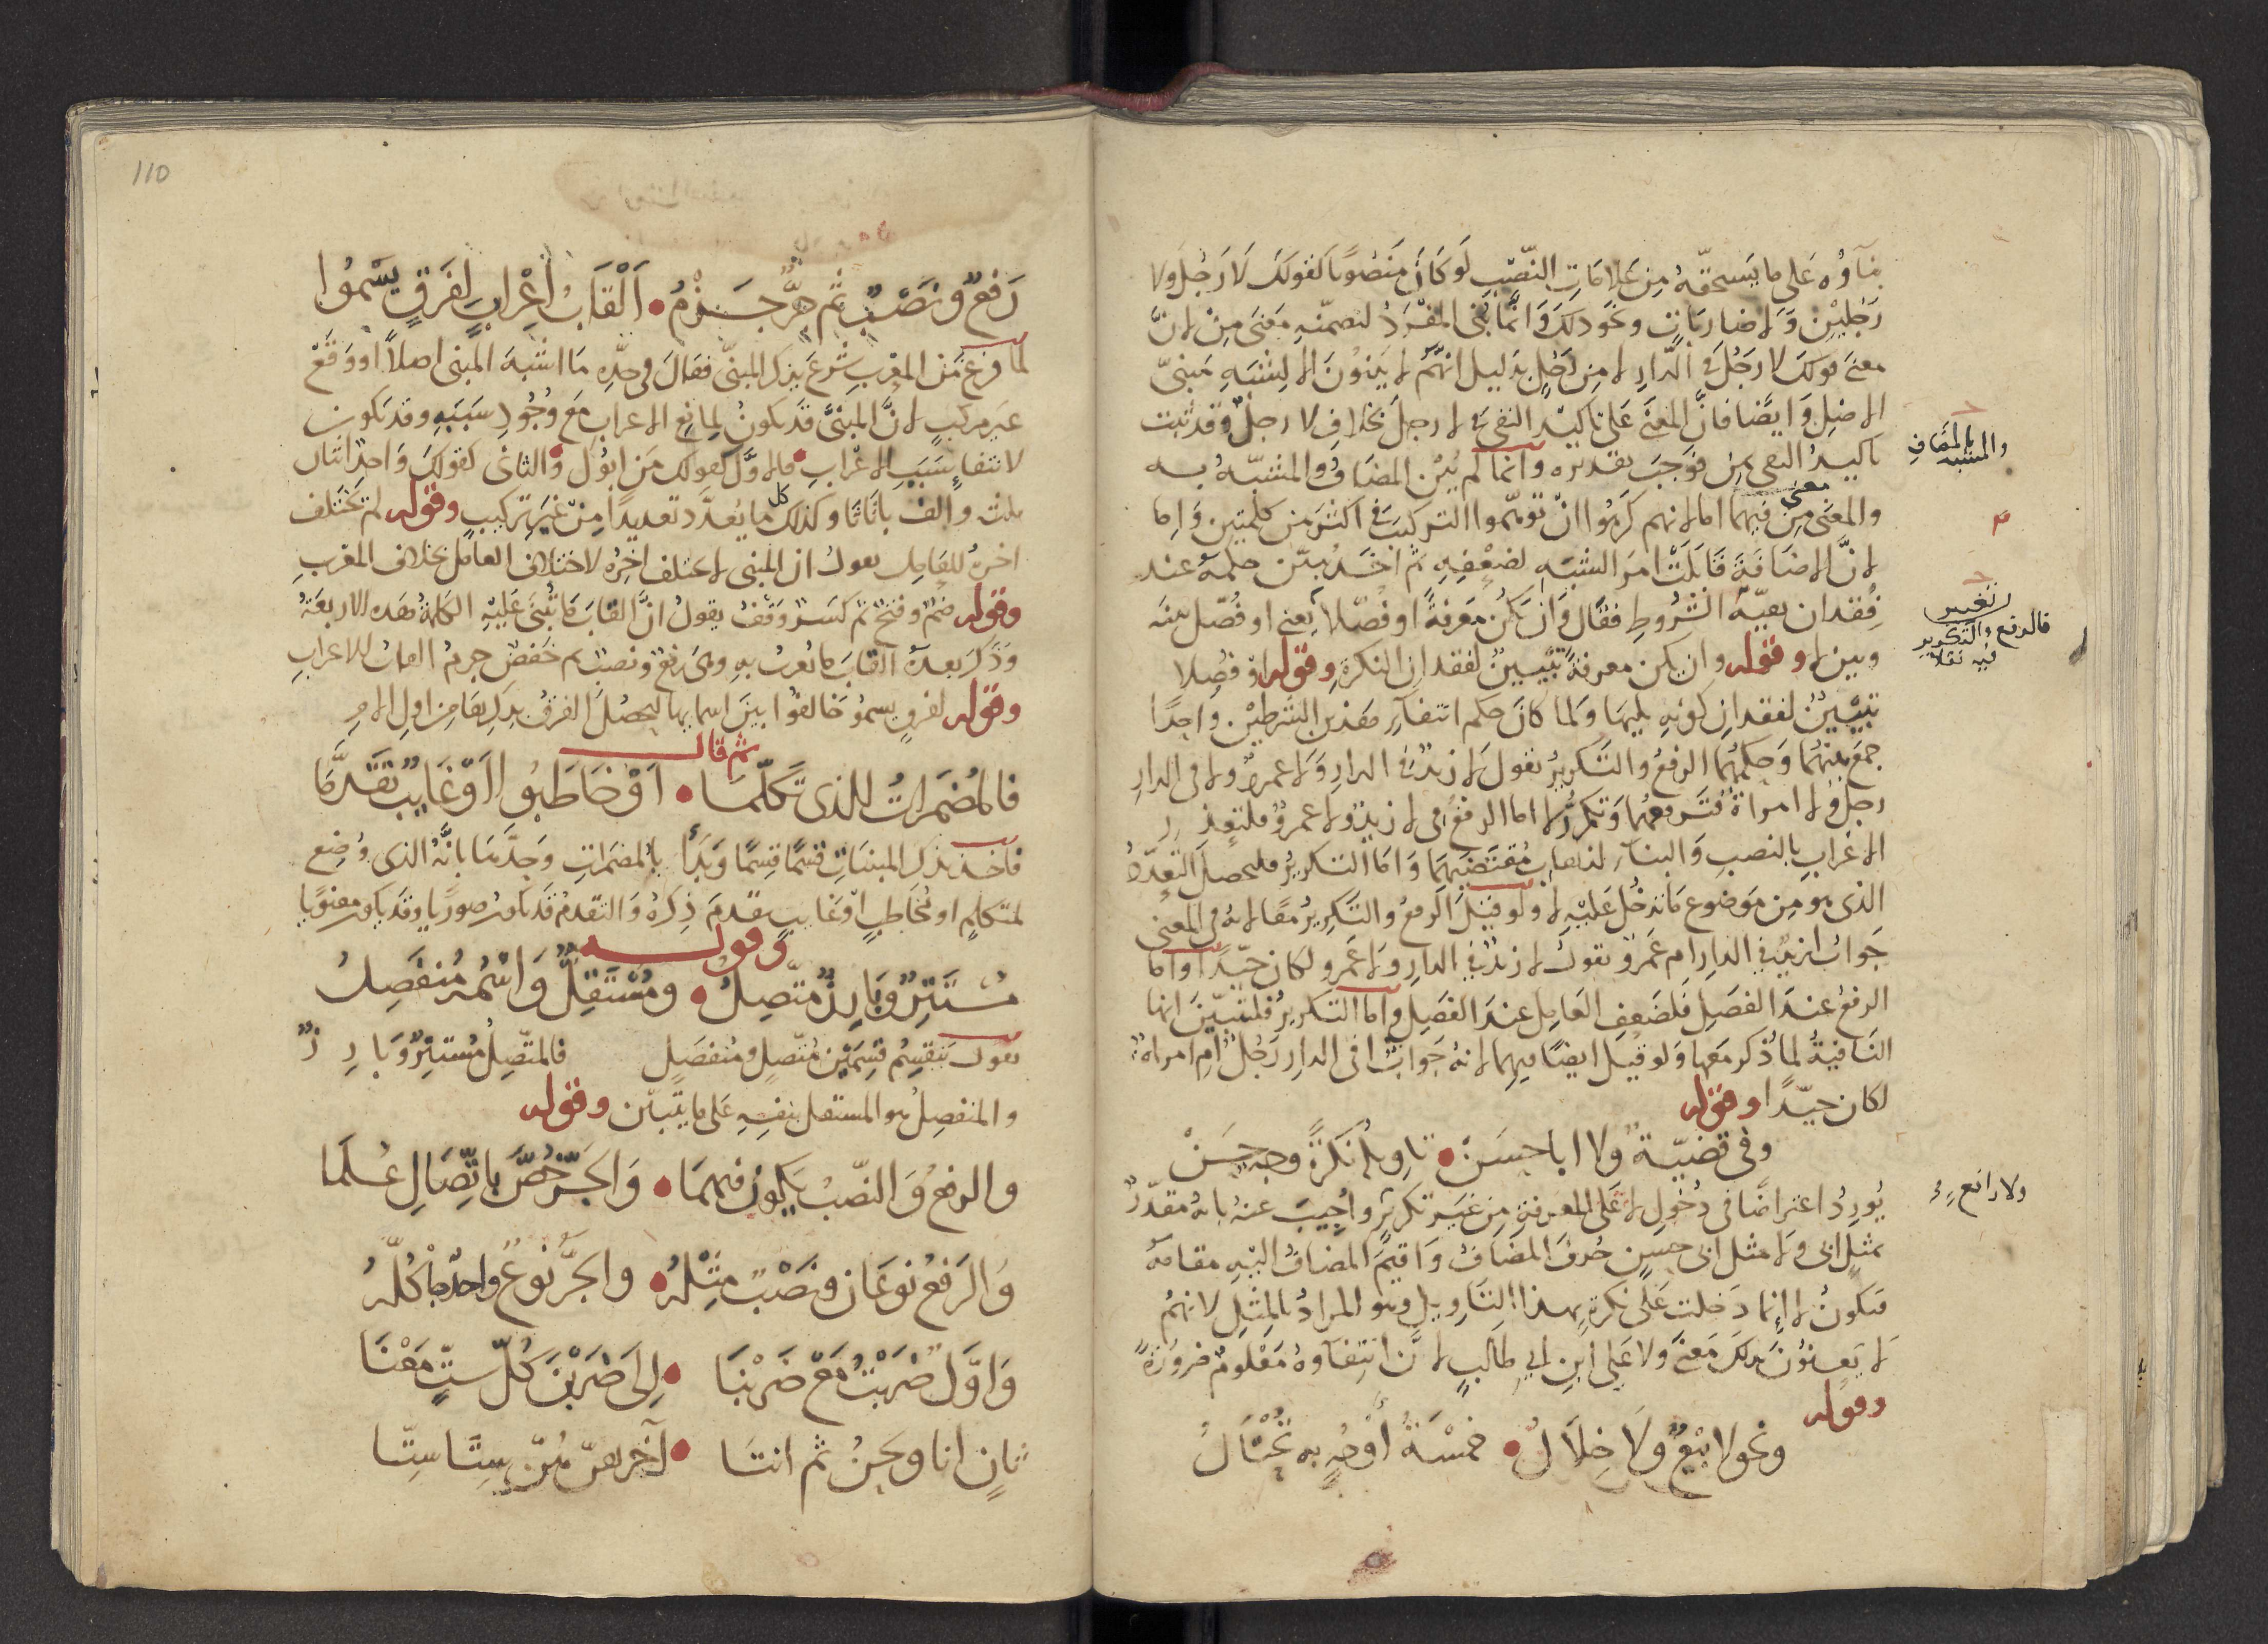 بناؤه على ما يستحقه من علامات النصب لو كان منصوبا كقولك لا رجل ولا
رجلين ولا ضاربات ونحو ذلك وانما بني المفرد لتضمنه معنى من لان
معنى قولك لا رجل في الدار لا من رجل بدليل انهم لا يبنون الا لشبه مبني
الاصل وايضا فان المعنى على تاكيد النفي في لا رجل بخلاف لا رجل وقد ثبت
تاكيد النفي بمن فوجب تقديره وانما لم يبن المضاف والمشبه به
والمعنى من فيهما اما لانهم كرهوا ان توهموا التركيب في اكثر من كلمتين واما
معنى
لان الاضافة قابلت امر الشبه لضعفه ثم اخذ يبين حكمه عند
فقدان بقية الشروط فقال وان يكن معرفة او فصلا يعني او فصل بينه
وبين لا وقوله وان يكن معرفة تبيين لفقدان النكرة وقوله او فصلا
تبيين لفقدان كونه يليها ولما كان حكم انتفاء هذين الشرطين واحدا
جمع بينهما وحكمهما الرفع والتكرير تقول لا زيد في الدار ولا عمرو ولا في الدار
رجل ولا امراة فترفعهما وتكرر لا اما الرفع في لا زيد ولا عمرو فلتعذر
الاعراب بالنصب والبناء لذهاب مقتضيهما واما التكرير فليحصل التعدد
الذي هو من موضوع ما تدخل عليه لا ولو قيل الرفع والتكرير معا لانه في المعنى
جواب ازيد في الدار ام عمرو تقول لا زيد في الدار ولا عمرو لكان جيدا واما
الرفع عند الفصل فلضعف العامل عند الفصل واما التكرير فلتبين انها
النافية لما ذكر معها ولو قيل ايضا فيهما لانه جواب افي الدار رجل ام امراة
لكان جيدا وقوله
وفي قضية ولا ابا حسن • تاويل نكرة وجه حسن
يورد اعتراضا في دخول لا على المعرفة من غير تكرير واجيب عنه بانه مقدر
بمثل اي ولا مثل ابي حسن حذف المضاف واقيم المضاف اليه مقامه
فتكون لا انما دخلت على نكرة بهذا التاويل وهو المراد بالمثل لانهم
لا يعنون بذلك معنى ولا علي ابن ابي طالب لان انتفاوه معلوم ضرورة
وقوله
ونحو لا بيع ولا خلال • خمسة اوجه به تختال
بالمضاف
والمشبه
تغيير
فالرفع والتكرير
فيه نقلا
ولا رافع
110
رفع ونصب ثم جر جزم • القاب اعراب لفرق يسموا
لما فرغ من المعرب شرع يذكر المبني فقال في حده ما اشبه المبني اصلا او وقع
غير مركب لان المبني قد يكون لمانع الاعراب مع وجود سببه وقد يكون
لانتفاء سبب الاعراب فالاول كقولك من ابوك والثاني كقولك واحد اثنان
ثلث والف با تا ثا وكذلك كل ما يعدد تعديدا من غير تركيب وقوله لم تختلف
اخره للعامل يقول ان المبني لا يختلف اخره لاختلاف العامل بخلاف المعرب
وقوله ضم وفتح ثم كسر وقف يقول ان القاب ما تبنى عليه الكلمة هذه الاربعة
وذكر بعده القاب ما يعرب به وهي رفع ونصب ثم خفض جزم القاب للاعراب
وقوله لفرق يسموا خالفوا بين اسمائها ليحصل الفرق بذكرها من اول الامر
ثم قال
فالمضمرات للذي تكلما • او خاطبوا او غايب تقدما
فاخذ يذكر المبنيات قسما قسما وبدا بالمضمرات وحدها بانه الذي وضع
لمتكلم او مخاطب او غايب تقدم ذكره والتقدم قد يكون صوريا وقد يكون معنويا
وقوله
مستتر وبارز متصل • ومستقل واسمه منفصل
يقول تنقسم قسمين متصل ومنفصل فالمتصل مستتر وبارز
والمنفصل هو المستقل بنفسه على ما يتبين وقوله
والرفع والنصب يكون فيهما • والجر خص باتصال علما
والرفع نوعان ونصب مثله • والجر نوع واحد ما كله
واول ضربت مع ضربنا • الى ضربن كل ست معنا
ثان انا ونحن ثم انتا • لآخرهن هن ستا ستا